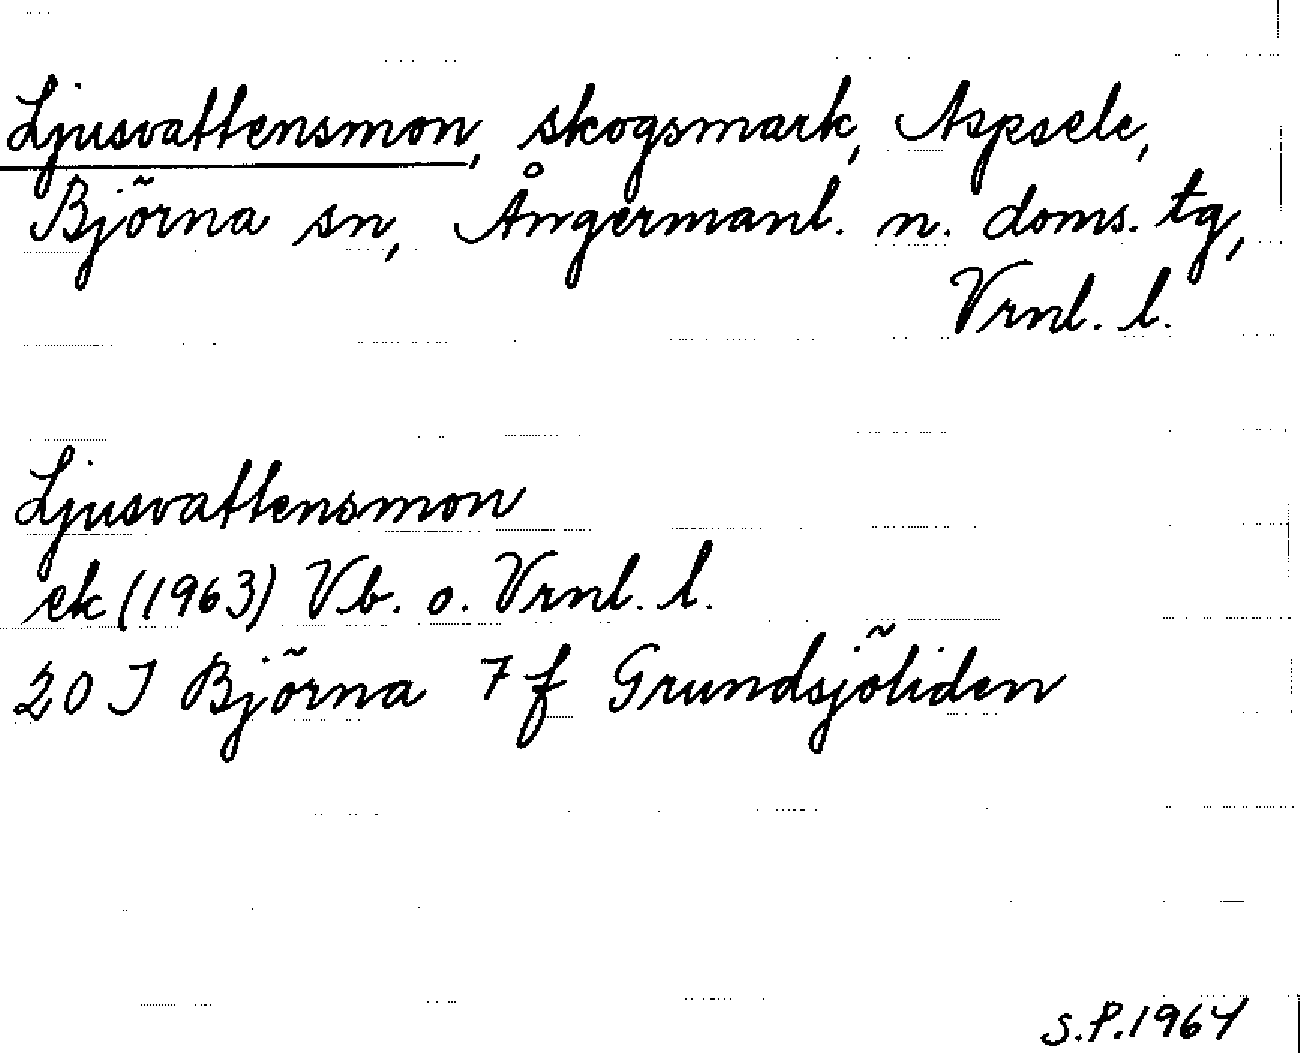 Ljusvattensmon, skogsmark, Aspsele,
Björna sn, Ångermanl. n. doms. tg,
Vrnl. l.
Ljusvattensmon
ek (1963) Vb. o. Vrnl. l.
20 I Björna 7 f Grundsjöliden
S.P. 1964